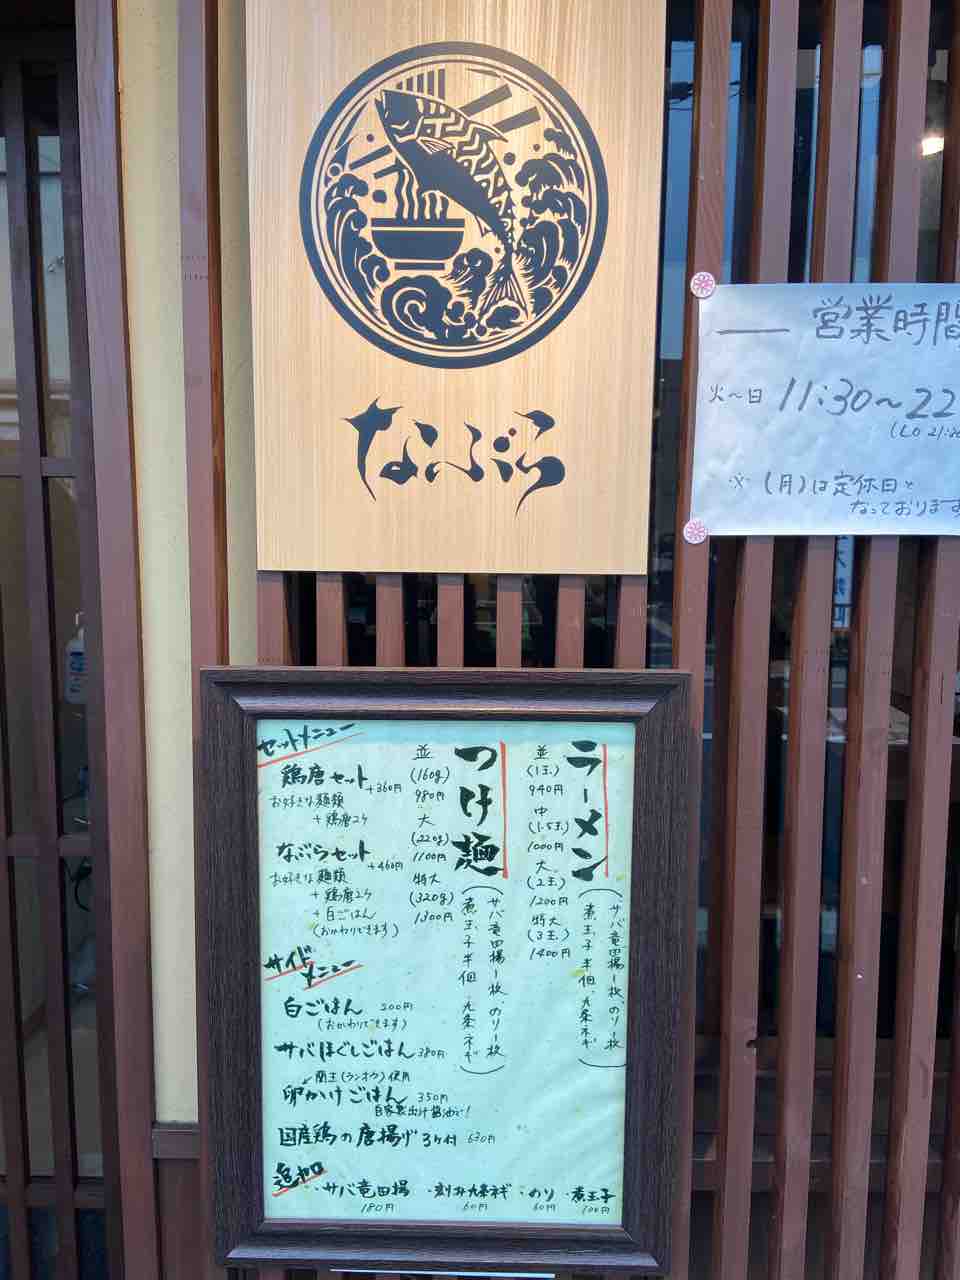 なぶら
営業時間
火〜日 11:30〜22
(LO 21:
※ (月)は定休日と
なっております
ラーメン
(サバ竜田揚1枚、のり1枚
煮玉子半個、九条ネギ)
並
(1玉)
940円
中
(1.5玉)
1000円
大
(2玉)
1200円
特大
(3玉)
1400円
つけ麺
(サバ竜田揚1枚、のり1枚
煮玉子半個、九条ネギ)
並
(160g)
980円
大
(220g)
1100円
特大
(320g)
1300円
セットメニュー
鶏唐セット +360円
お好きな麺類
+鶏唐2ケ
なぶらセット +460円
お好きな麺類
+鶏唐2ケ
+白ごはん
(おかわりできます)
サイド
メニュー
白ごはん 200円
(おかわりできます)
サバほぐしごはん 380円
蘭王(ランオウ)使用
卵かけごはん 350円
自家製出汁醤油で!
国産鶏の唐揚げ 3ケ付 630円
追加
・サバ竜田揚 ・刻み九条ネギ ・のり ・煮玉子
180円 60円 60円 100円